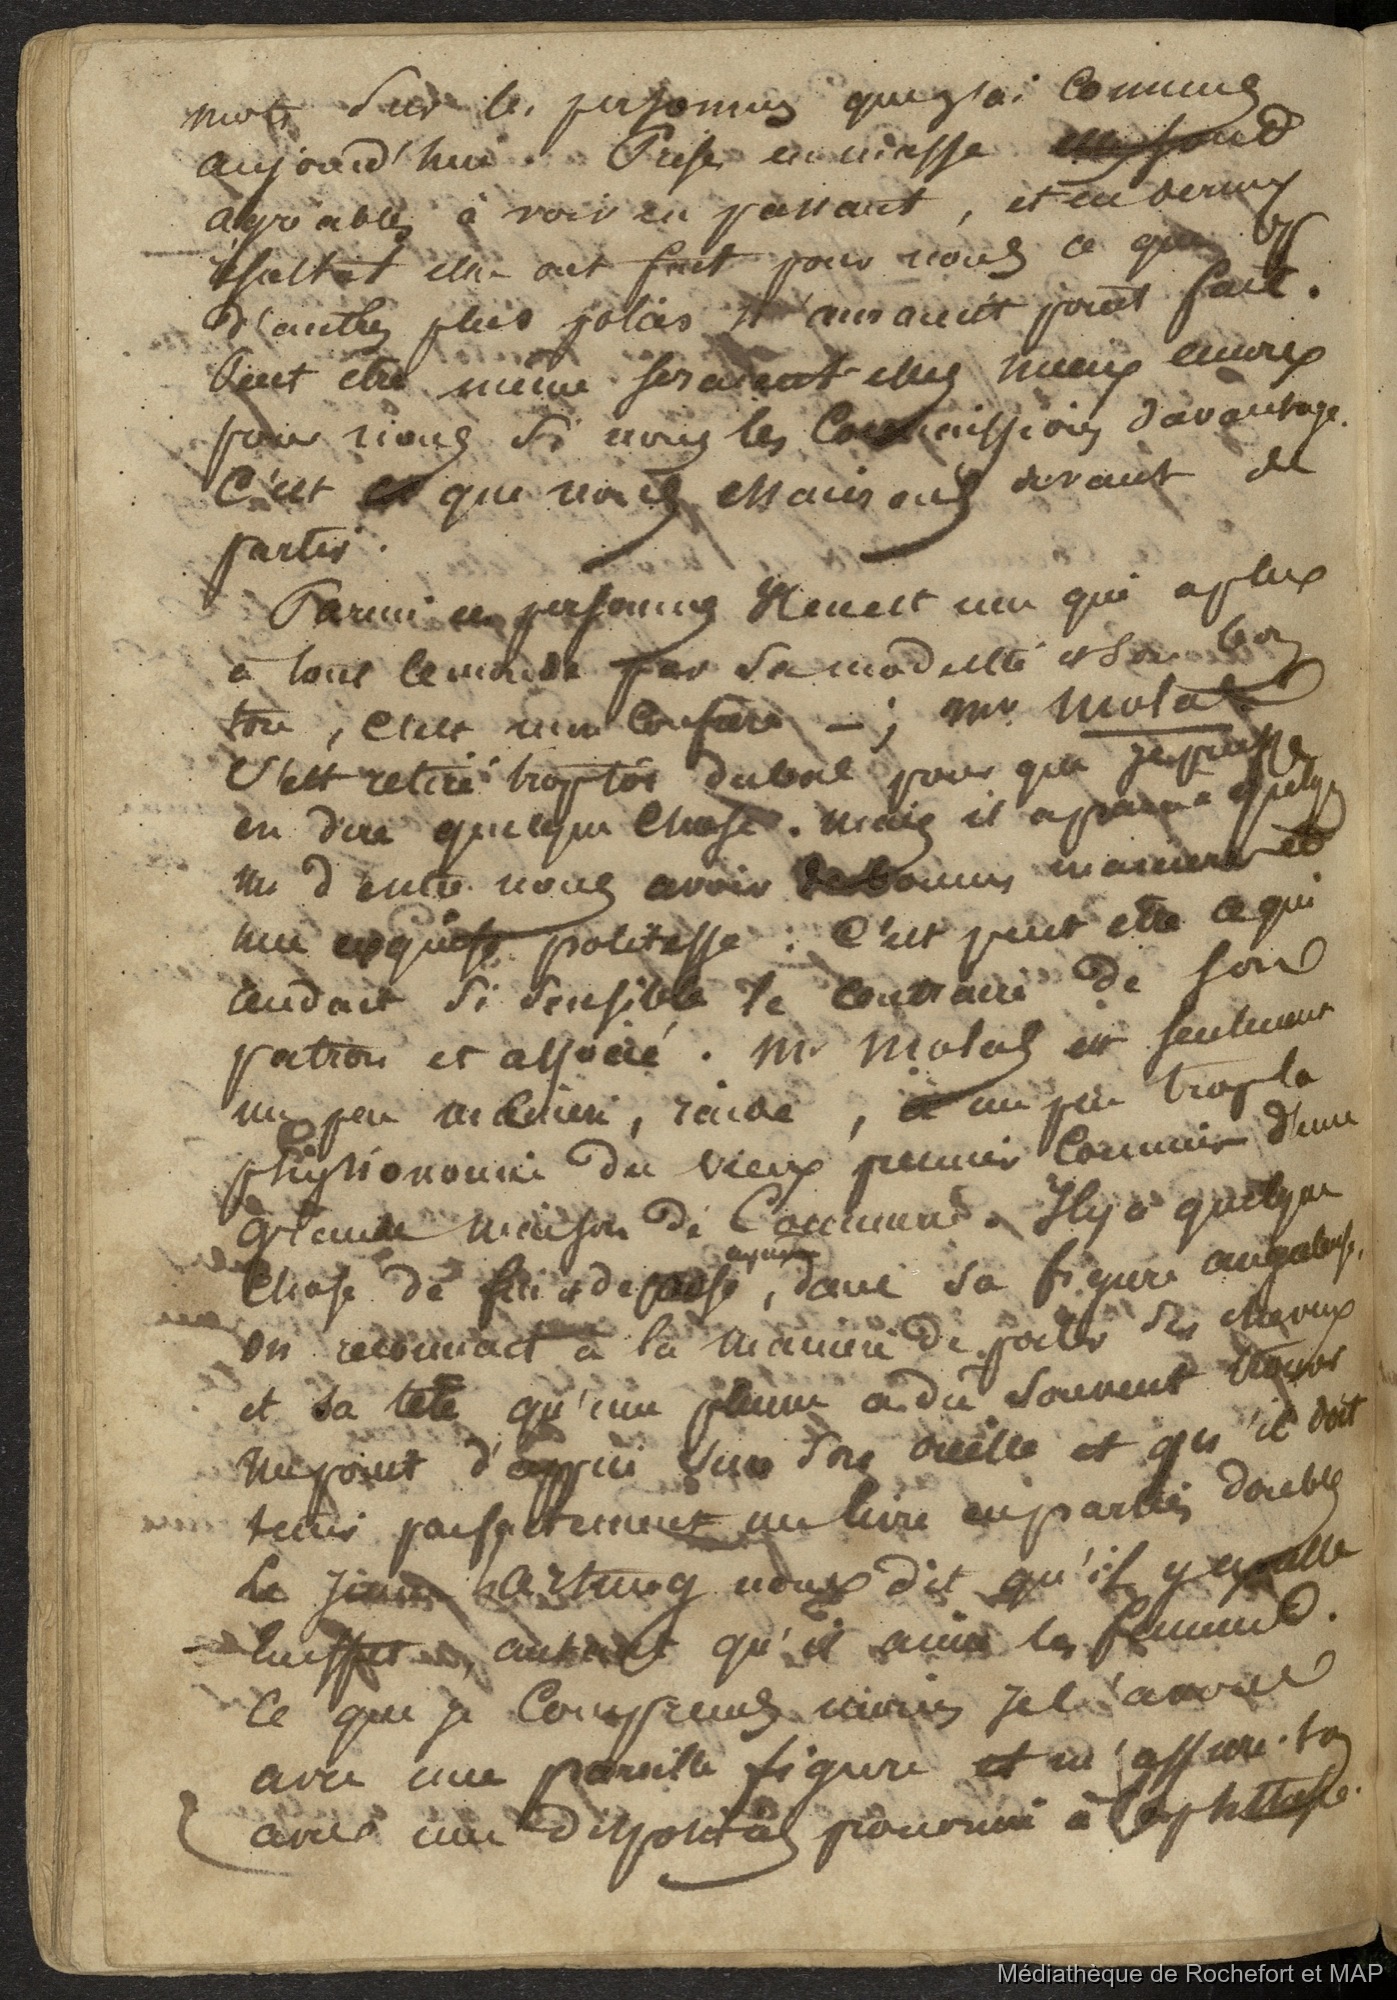 mots sur les personnes que j'ai connues
aujourd'hui. Prises en masse elles sont
agréables à voir en passant, et en dernier
résultat elles ont fait pour nous ce que
d'autres plus polies n'auraient point fait.
Peut être même seraient elles mieux encore
pour nous si nous les connaissions davantage.
C'est ce que nous essairons avant de
partir.
Parmi ces personnes il en est une qui a plu
à tout le monde par sa modestie et son bon
ton, c'est mon confrère —; Mr Molas
s'est retiré trop tôt du bal pour que je puisse
en dire quelque chose. mais il a paru à quelqu'
un d'entre nous avoir de bonnes manières et
une exquise politesse: C'est peut être ce qui
rendait si sensible le contraire de son
patron et associé. Mr Molas est seulement
un peu maniéré, raide, a un peu trop la
physionomie du vieux premier commis d'une
grande maison de Commerce. Il y a quelque
chose de fin et de dans sa figure anguleuse,
on reconnait à la manière de porter ses cheveux
et sa tête qu'une plume a du souvent trouver
un point d'appui sur son oreille et qu'il doit
tenir parfaitement un livre en parties doubles
Le jeune nous dit qu'il y
autant qu'il aime les femmes.
Ce que je comprends moins je l'avoue
avec une pareille figure et m'assure-t-on
avec une à
Médiathèque de Rochefort et MAP